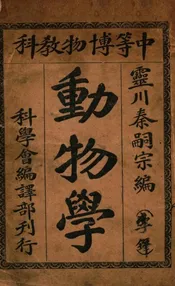 中等博物教科
靈川秦嗣宗編
動物學
科學會編譯部刊行